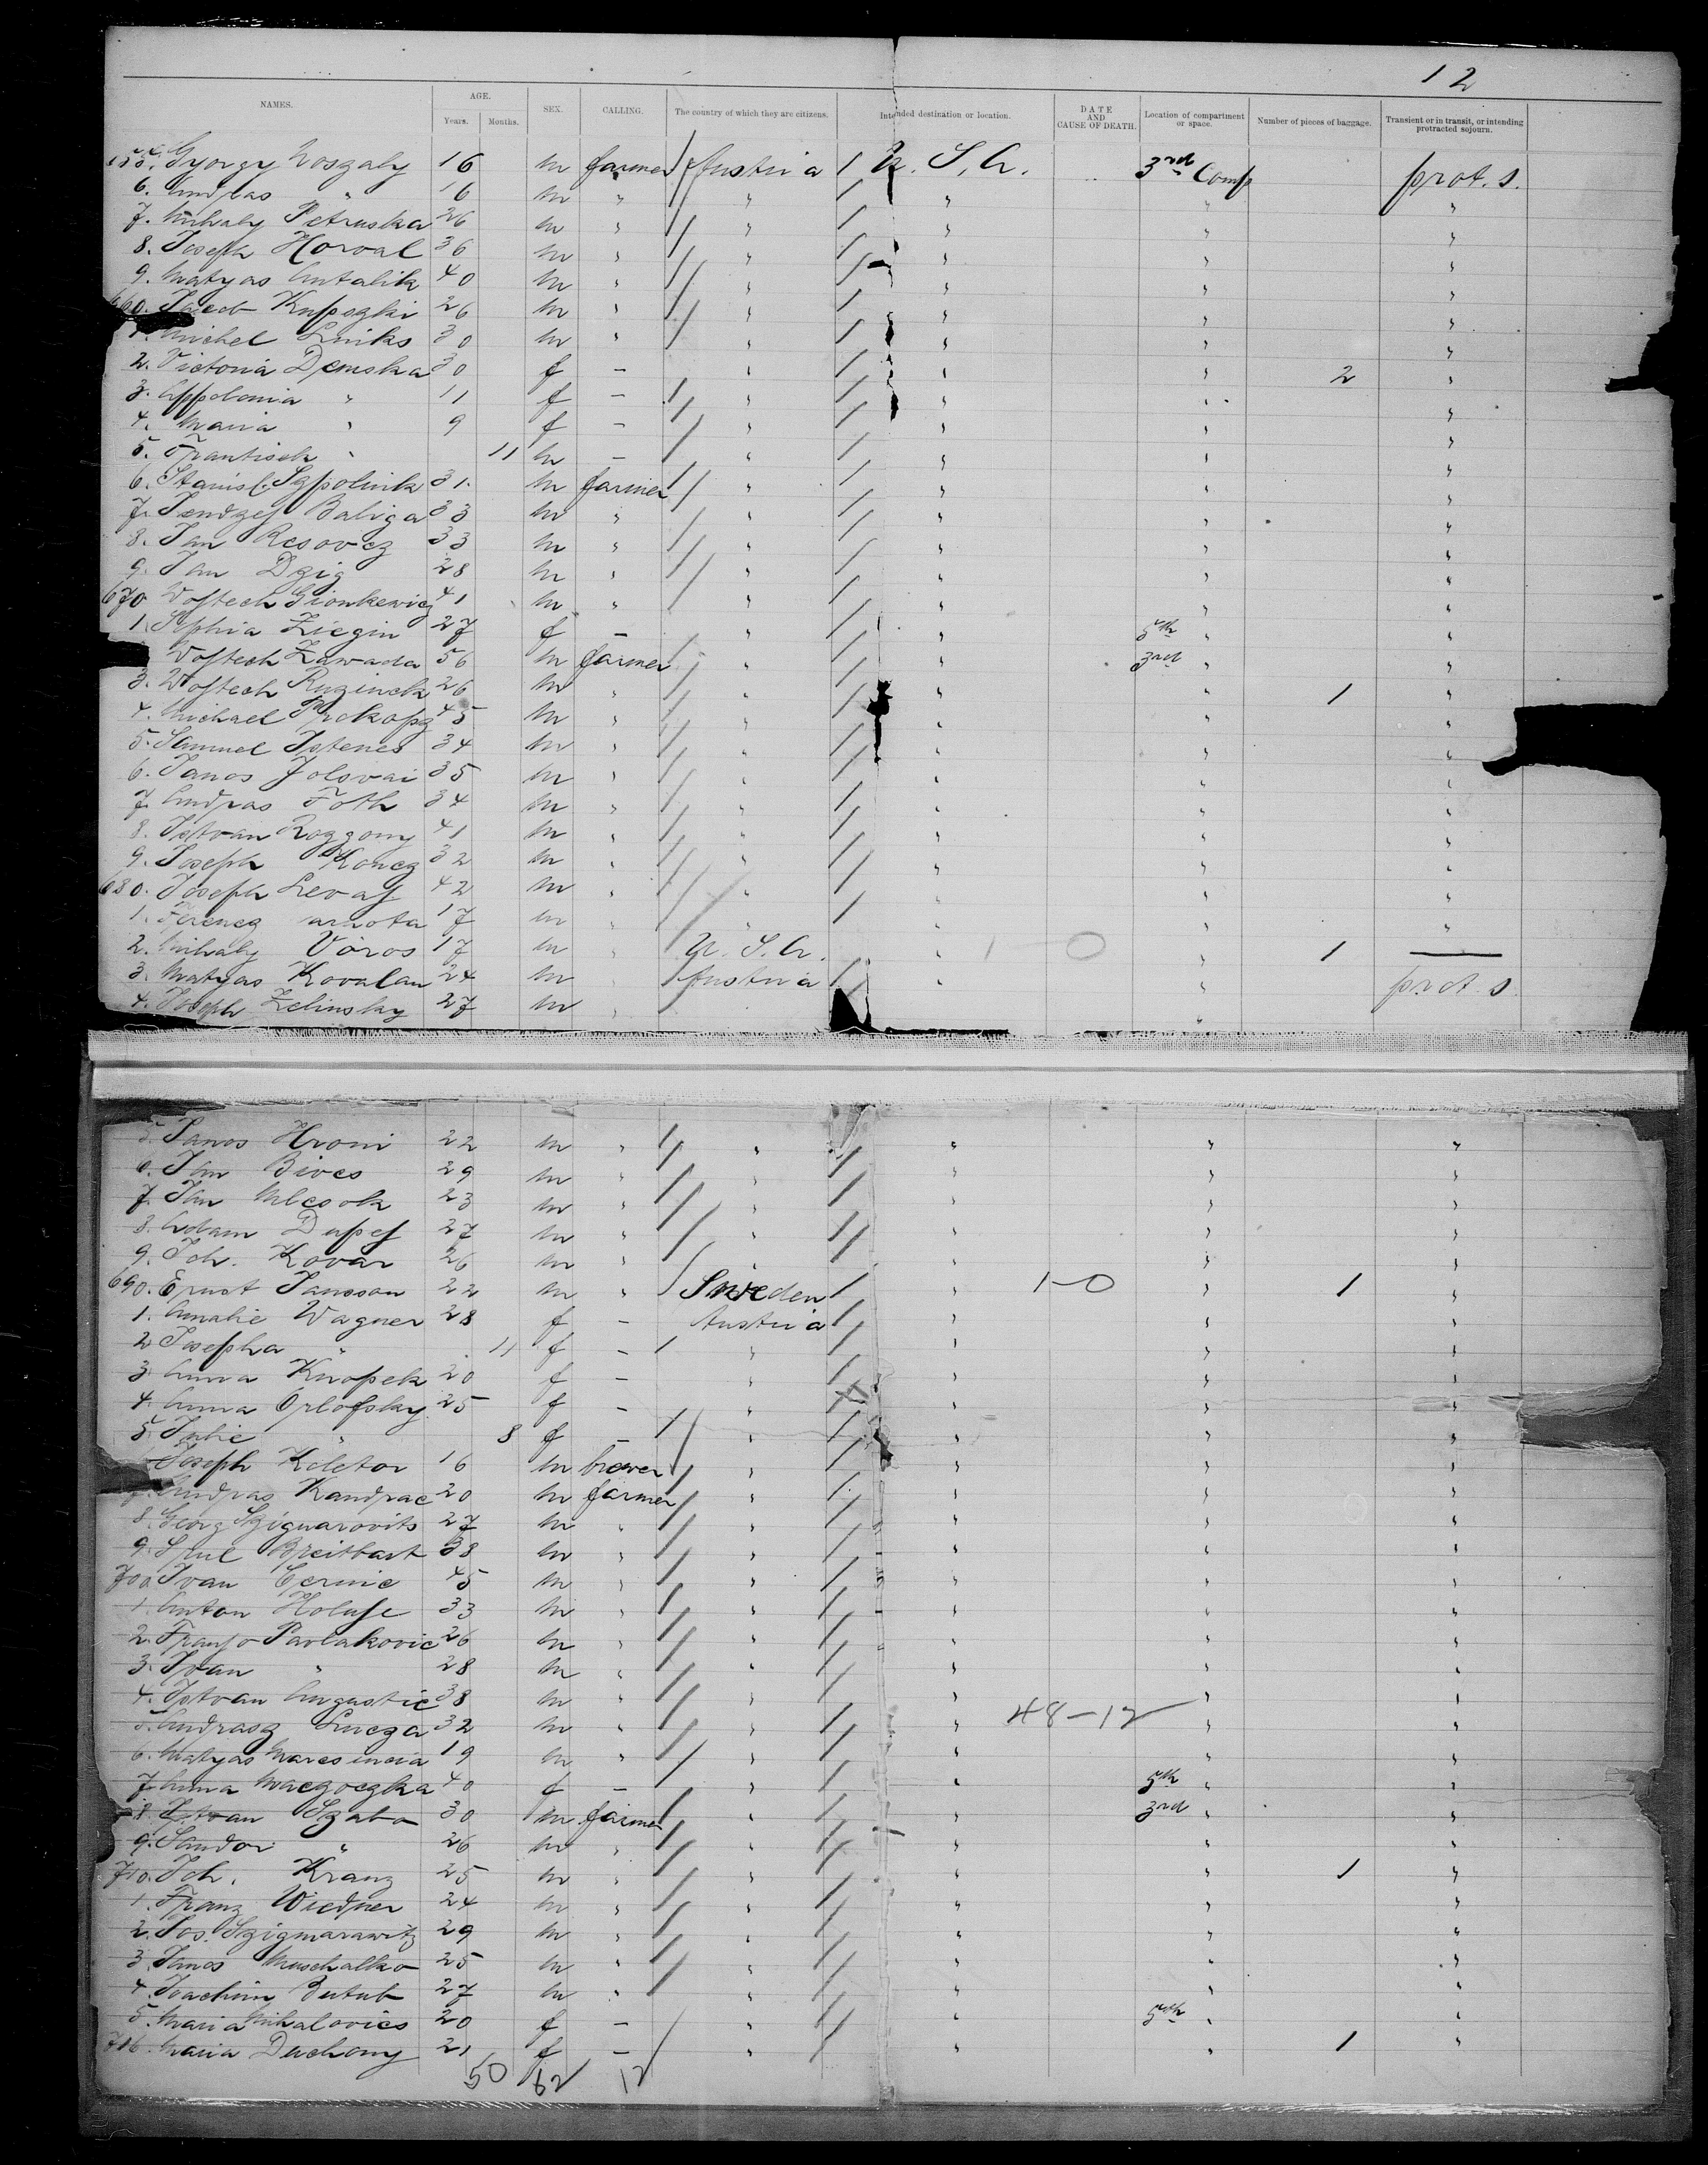 12
NAMES. AGE. Years. Months. SEX. CALLING. The country of which they are citizens. Intended destination or location. DATE AND CAUSE OF DEATH. Location of compartment or space. Number of pieces of baggage. Transient or in transit, or intending protracted sojourn.
Gyorgy Woszaly 16 m farmer Austria 1 U. S. A. 3rd Comp prot. s.
6. Andras " 16 m " " " " "
7. Mihaly Petruska 26 m " " " " "
8. Joseph Horval 36 m " " " " "
9. Matyas Antalik 40 m " " " " "
660. Jacob Kupszki 26 m " " " " "
1. Michel Sniks 30 m " " " " "
2. Victoria Demska 30 f - " " " 2 "
3. Appolonia " 11 f - " " " "
4. Maria " 9 f - " " " "
5. Frantisch " 11 m - " " " "
6. Stanisl. Szpolnik 31. m farmer " " " "
7. Jendzej Baliga 33 m " " " " "
8. Jan Resovcz 33 m " " " " "
9. Jan Dzig 28 m " " " " "
670 Wojtech Sionkewicz 41 m " " " " "
1. Sophia Ziegin 27 f - " " 5th " "
Wojtech Zawada 56 m farmer " " 3rd " "
3. Wojtech Ruzinek 26 m " " " " 1 "
4. Michael Prokopz 45 m " " " " "
5. Samuel Istenes 34 m " " " " "
6. Janos Jolsvai 35 m " " " " "
7. Andras Toth 34 m " " " " "
8. Istvan Rozgony 41 m " " " " "
9. Joseph Koncz 32 m " " " " "
680. Joseph Levaj 42 m " " " " "
1. Ferencz arnota 17 m " " " " "
2. Mihaly Voros 17 m " U. S. A. " 1 0 " 1 —
3. Matyas Kovalan 24 m " Austria " " prot. s
4. Joseph Zelinsky 27 m " "
5. Janos Hroni 22 m " " " " "
6. Jan Bives 29 m " " " " "
7. Jan Mlesok 23 m " " " " "
8. Adam Dupej 27 m " " " " "
9. Joh. Kovar 26 m " " " " "
690. Ernst Jansson 22 m " Sweden " 1-0 " 1 "
1. Amalie Wagner 28 f - Austria " " "
2 Josepha " 11 f - " " " "
3 Anna Knopek 20 f - " " " "
4. Anna Orlofsky 25 f - " " " "
5 Julie " 8 f - " " " "
Joseph Keletor 16 m brewer " " " "
7. Andras Kandrac 20 m farmer " " " "
8. Georg Sziguarovits 27 m " " " " "
9. Srul Breitbart 38 m " " " " "
700 Ivan Cernic 45 m " " " " "
1. Anton Holuse 33 m " " " " "
2. Franjo Pavlakovic 26 m " " " " "
3. Ivan " 28 m " " " " "
4. Istvan Augustic 38 m " " " " "
5. Andrasz Lucza 32 m " " " 48-12 " "
6. Matyas 19 m " " " " "
7. Anna Maczoczka 40 f - " " 5th " "
8. Istvan Szabo 30 m farmer " " 3rd " "
9. Sandor " 26 m " " " " "
710. Joh. Kranz 25 m " " " " 1 "
1. Franz Wiedner 24 m " " " " "
2. Jos. Szigmarawitz 29 m " " " " "
3. Janos Muschalko 25 m " " " " "
4. Joachim Butub 27 m " " " " "
5. Maria Mihalovics 20 f - " " 5th " "
716. Maria Duchony 21 f - " " " 1 "
50 62 12